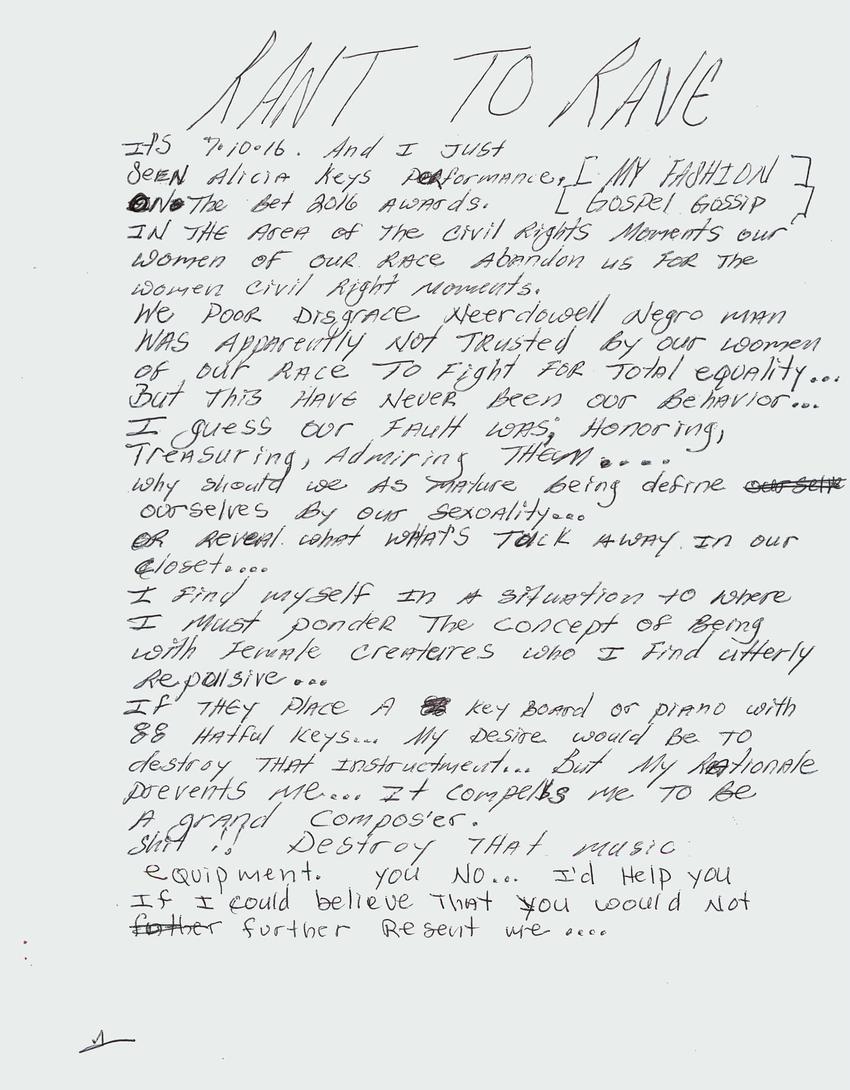 RANT TO RAVE
It's 7.10.16. And I Just
Seen Alicia Keys Performance, [MY FASHION]
The Bet 2016 Awards. [Gospel Gossip]
In The Area of The Civil Rights Moments our
women of our Race Abandon us For The
women Civil Right Moments.
We Poor Disgrace Neerdowell Negro man
was Apparently Not Trusted By our women
of our Race To Fight For Total equality...
But This Have Never Been our Behavior...
I guess our Fault was; Honoring,
Treasuring, Admiring Them.....
why should we As Mature being define
ourselves By our sexoality...
or Reveal what what's Tuck Away In our
closet....
I Find myself In A situation to where
I Must ponder The Concept of Being
with Female Createires who I Find utterly
Repulsive...
If They Place A Key Board or piano with
88 Hatful Keys... My Desire would Be To
destroy That Instructment... But My Rationale
prevents Me... It compells me To Be
A grand Composer.
shit !! Destroy THAt music
equipment. you No... I'd Help you
If I could believe That you would Not
further Resent me....